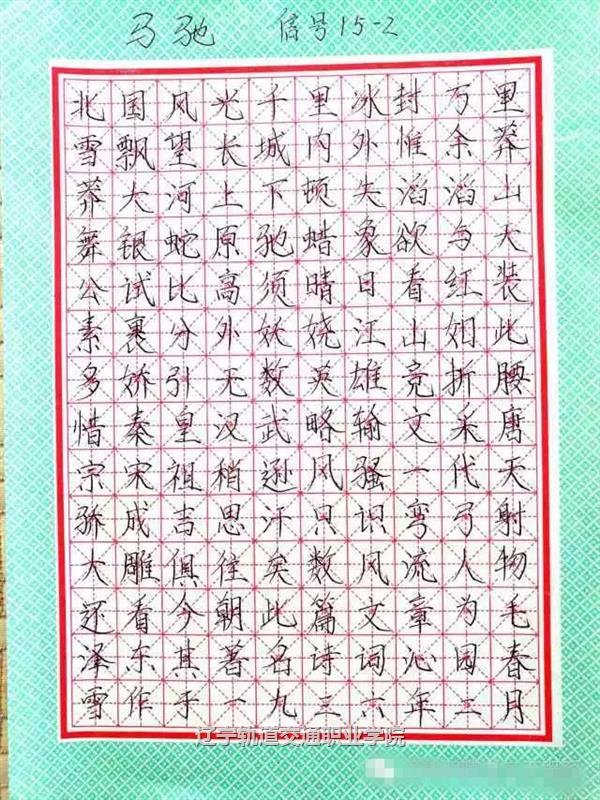 马驰 信号15-2
北国风光千里冰封万里
雪飘望长城内外惟余莽
莽大河上下顿失滔滔山
舞银蛇原驰蜡象欲与天
公试比高须晴日看红装
素裹分外妖娆江山如此
多娇引无数英雄竞折腰
惜秦皇汉武略输文采唐
宗宋祖稍逊风骚一代天
骄成吉思汗只识弯弓射
大雕俱往矣数风流人物
还看今朝此篇文章为毛
泽东其著名诗词沁园春
雪作于一九三六年二月
辽宁轨道交通职业学院